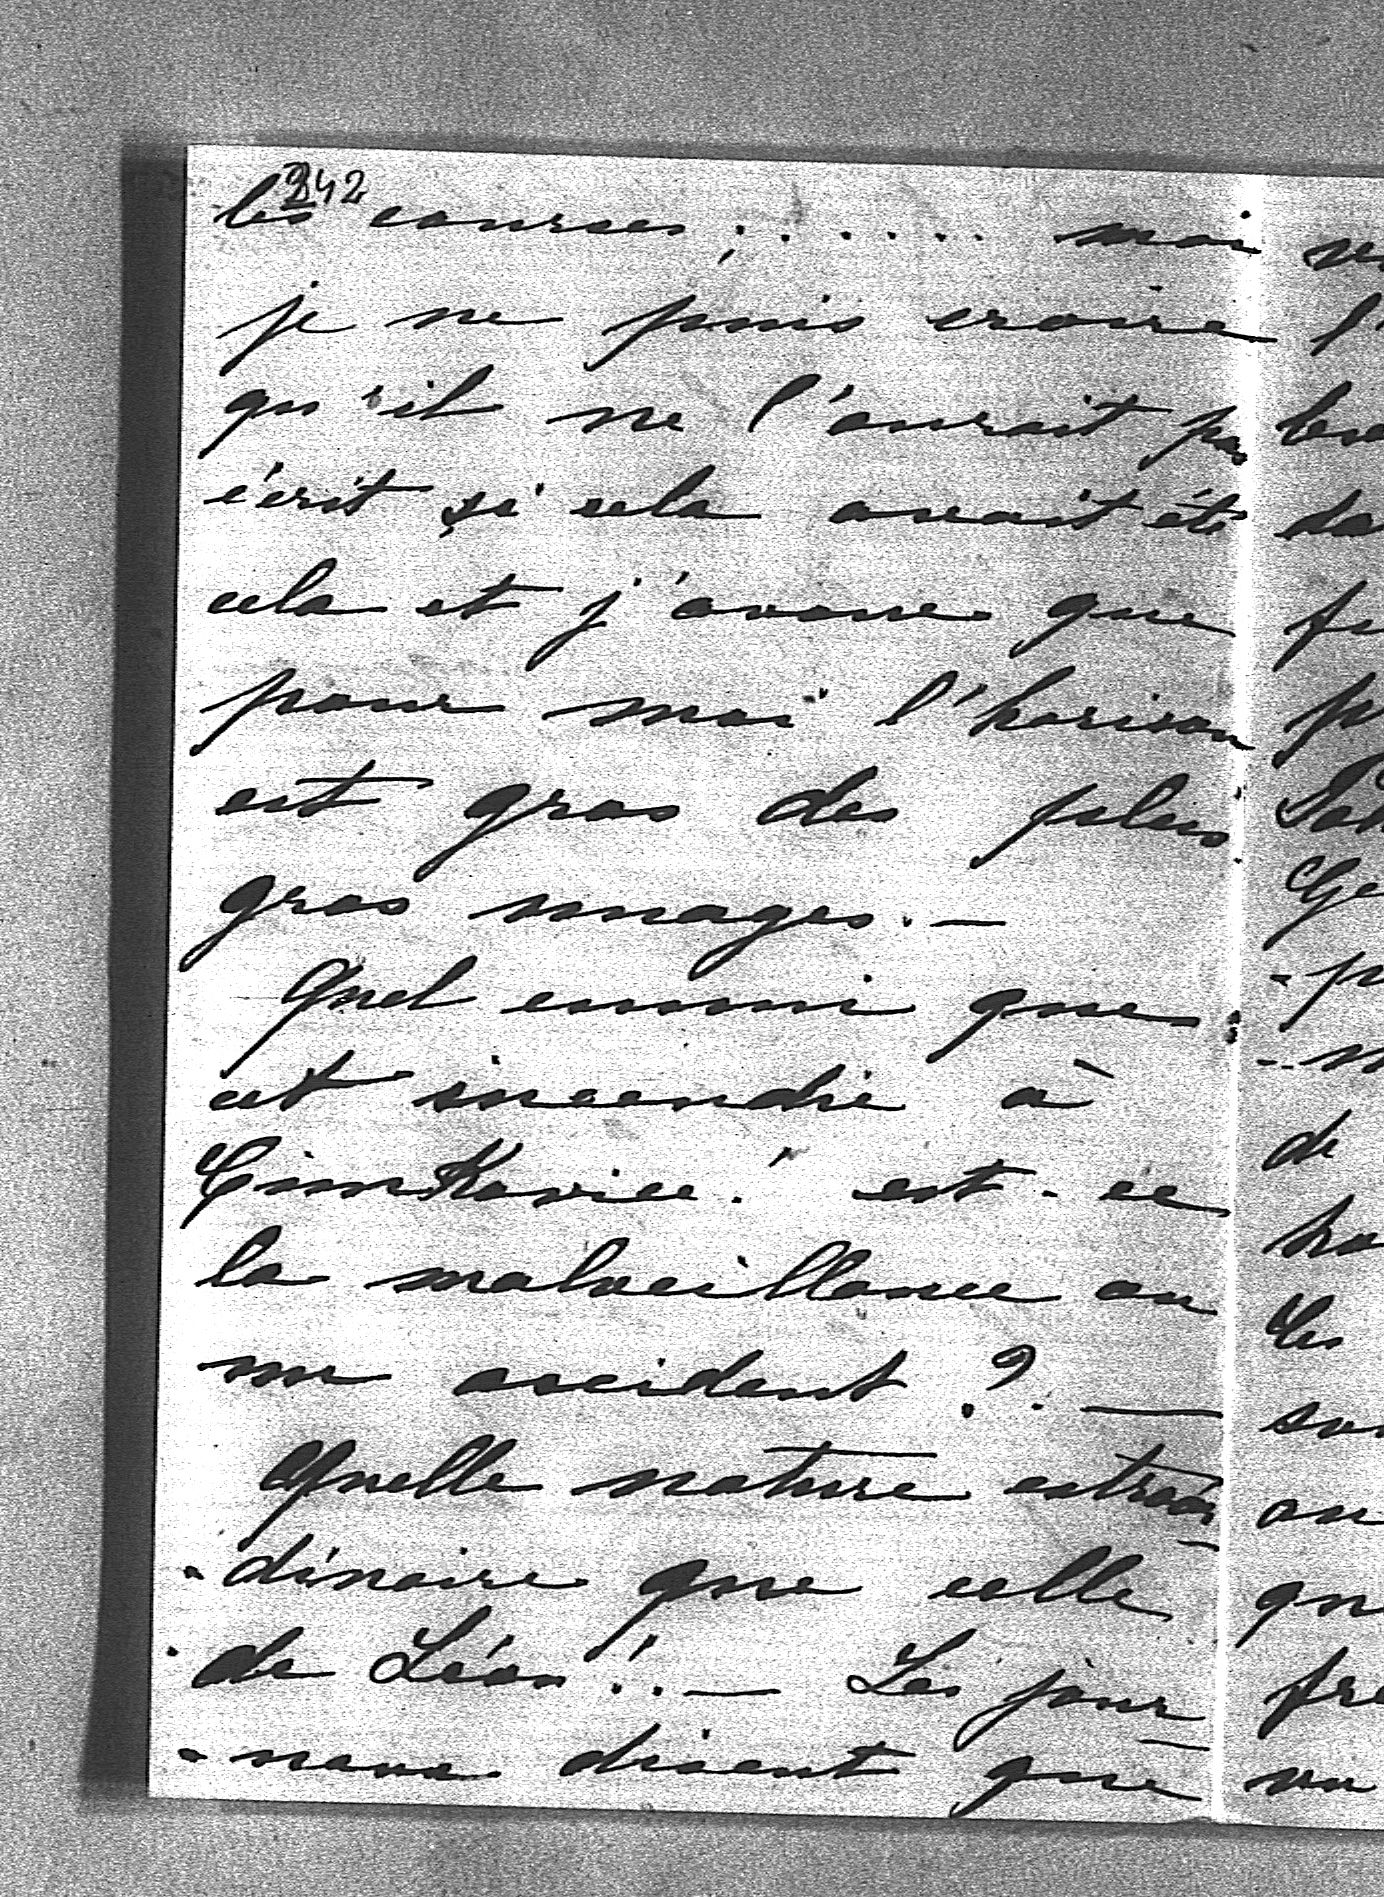 242
les courses; ..... moi
je ne puis croire
qu'il ne l'aurait pas
écrit si cela avait été
cela et j'avoue que
pour moi l'horison
est gros des plus
gros nuages. —
Quel ennui que
cet incendie à
est-ce
la malveillance ou
un accident ?. —
Quelle nature extraor-
-dinaire que celle
de Léon !. — Les jour-
-naux disent que